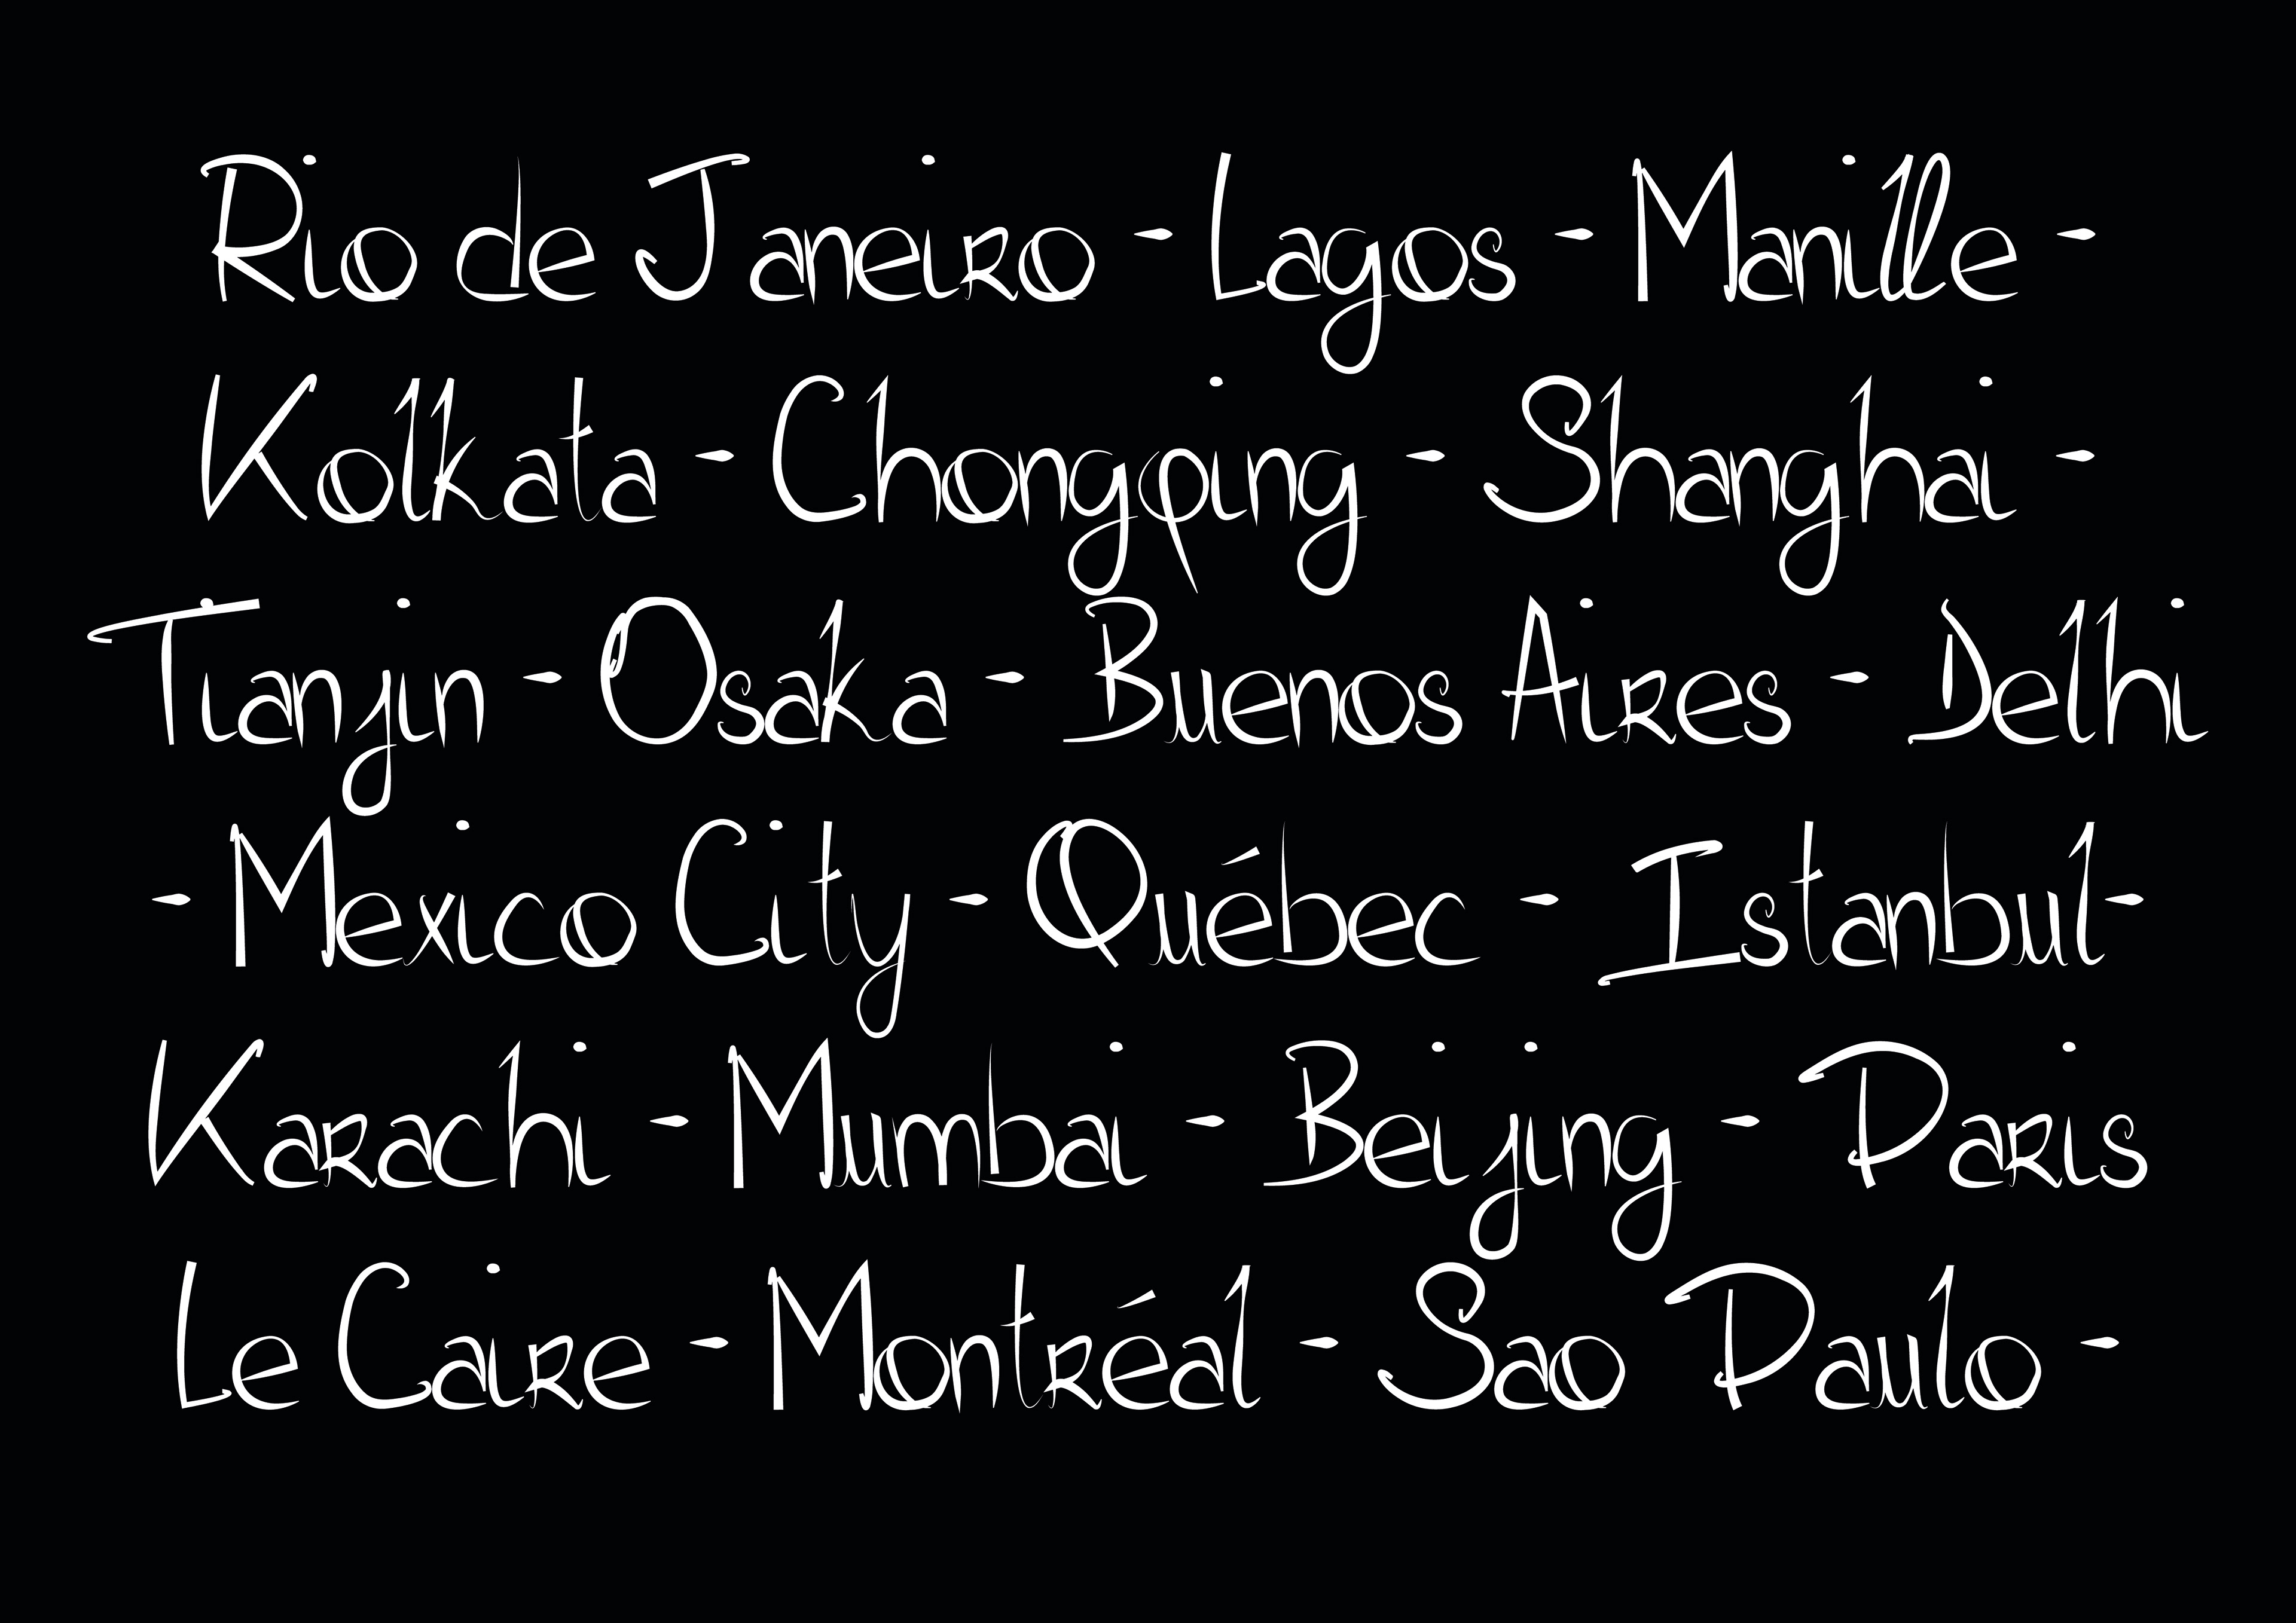 Rio de Janeiro - Lagos - Manille -
Kolkata - Chongqing - Shanghai -
Tianjin - Osaka - Buenos Aires - Delhi
- Mexico City - Québec - Istanbul -
Karachi - Mumbai - Beijing - Paris
Le Caire - Montréal - Sao Paulo -